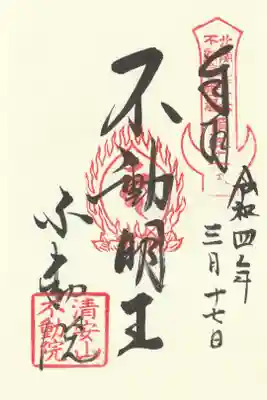 奉拝
令和四年
三月十七日
不動明王
不動院
清安山
不動院